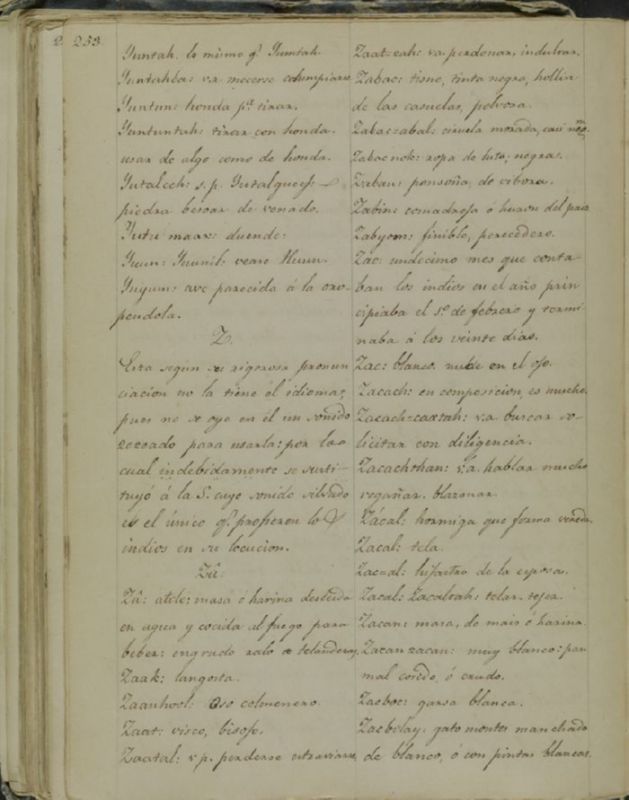 253.
Yuntah. lo mismo q.e Yumtah
Yuntahba: v.a mecerse columpiarse
Yuntun: honda p.a tirar.
Yuntuntah: tirar con honda.
usar de algo como de honda.
Yutalceh: s.p. Yutalqueeh
piedra besoar de venado.
duende.
Yuun: Yuunil: vease
Yuyum: ave parecida á la oro-
pendola.
Z.
Esta segun su rigorosa pronun
ciacion no la tiene el idioma;
pues no se oye en él un sonido
zezeado para usarla: por lo
cual indebidamente se susti-
tuyó á la S. cuyo sonido silvado
es el único q.e profieren los
indios en su locucion.
Zâ.
Zâ: atole: masa ó harina desleida
en agua y cocida al fuego para
beber: engrudo ralo de telanderas
Zaak: langosta.
Zaanhool: Oso colmenero.
Zaat: visco, bisojo.
Zaatal: v.p. perderse extraviarse
Zaatzah: v.a perdonar, indultar.
Zabac: tisne, tinta negra, hollin
de las casuelas, polvora.
Zabacabal: ciruela morada, casi
Zabacnok: ropa de luto, negra.
Zaban: ponsoña, de vibora.
Zabin: comadreja ó huron del pais
Zabyom: finible, perecedero.
Zac: undecimo mes que conta-
ban los indios en el año prin
cipiaba el 1.o de febrero y termi
naba á los veinte dias.
Zac: blanco. nube en el ojo.
Zacach: en composicion, es mucho.
Zacach-caxtah: v.a buscar so-
licitar con diligencia.
Zacachthan: v.a. hablar mucho
regañar. blazonar.
Zácal: hormiga que forma vereda.
Zacal: tela.
Zacual: hijastro de la esposa.
Zacal: Zacaltah: telar. tejer.
Zacan: masa, de mais ó harina.
Zacanzacan: muy blanco: pan
mal cocido, ó crudo.
Zacboc: garsa blanca.
Zacbolay. gato montes manchado
de blanco, ó con pintas blancas.